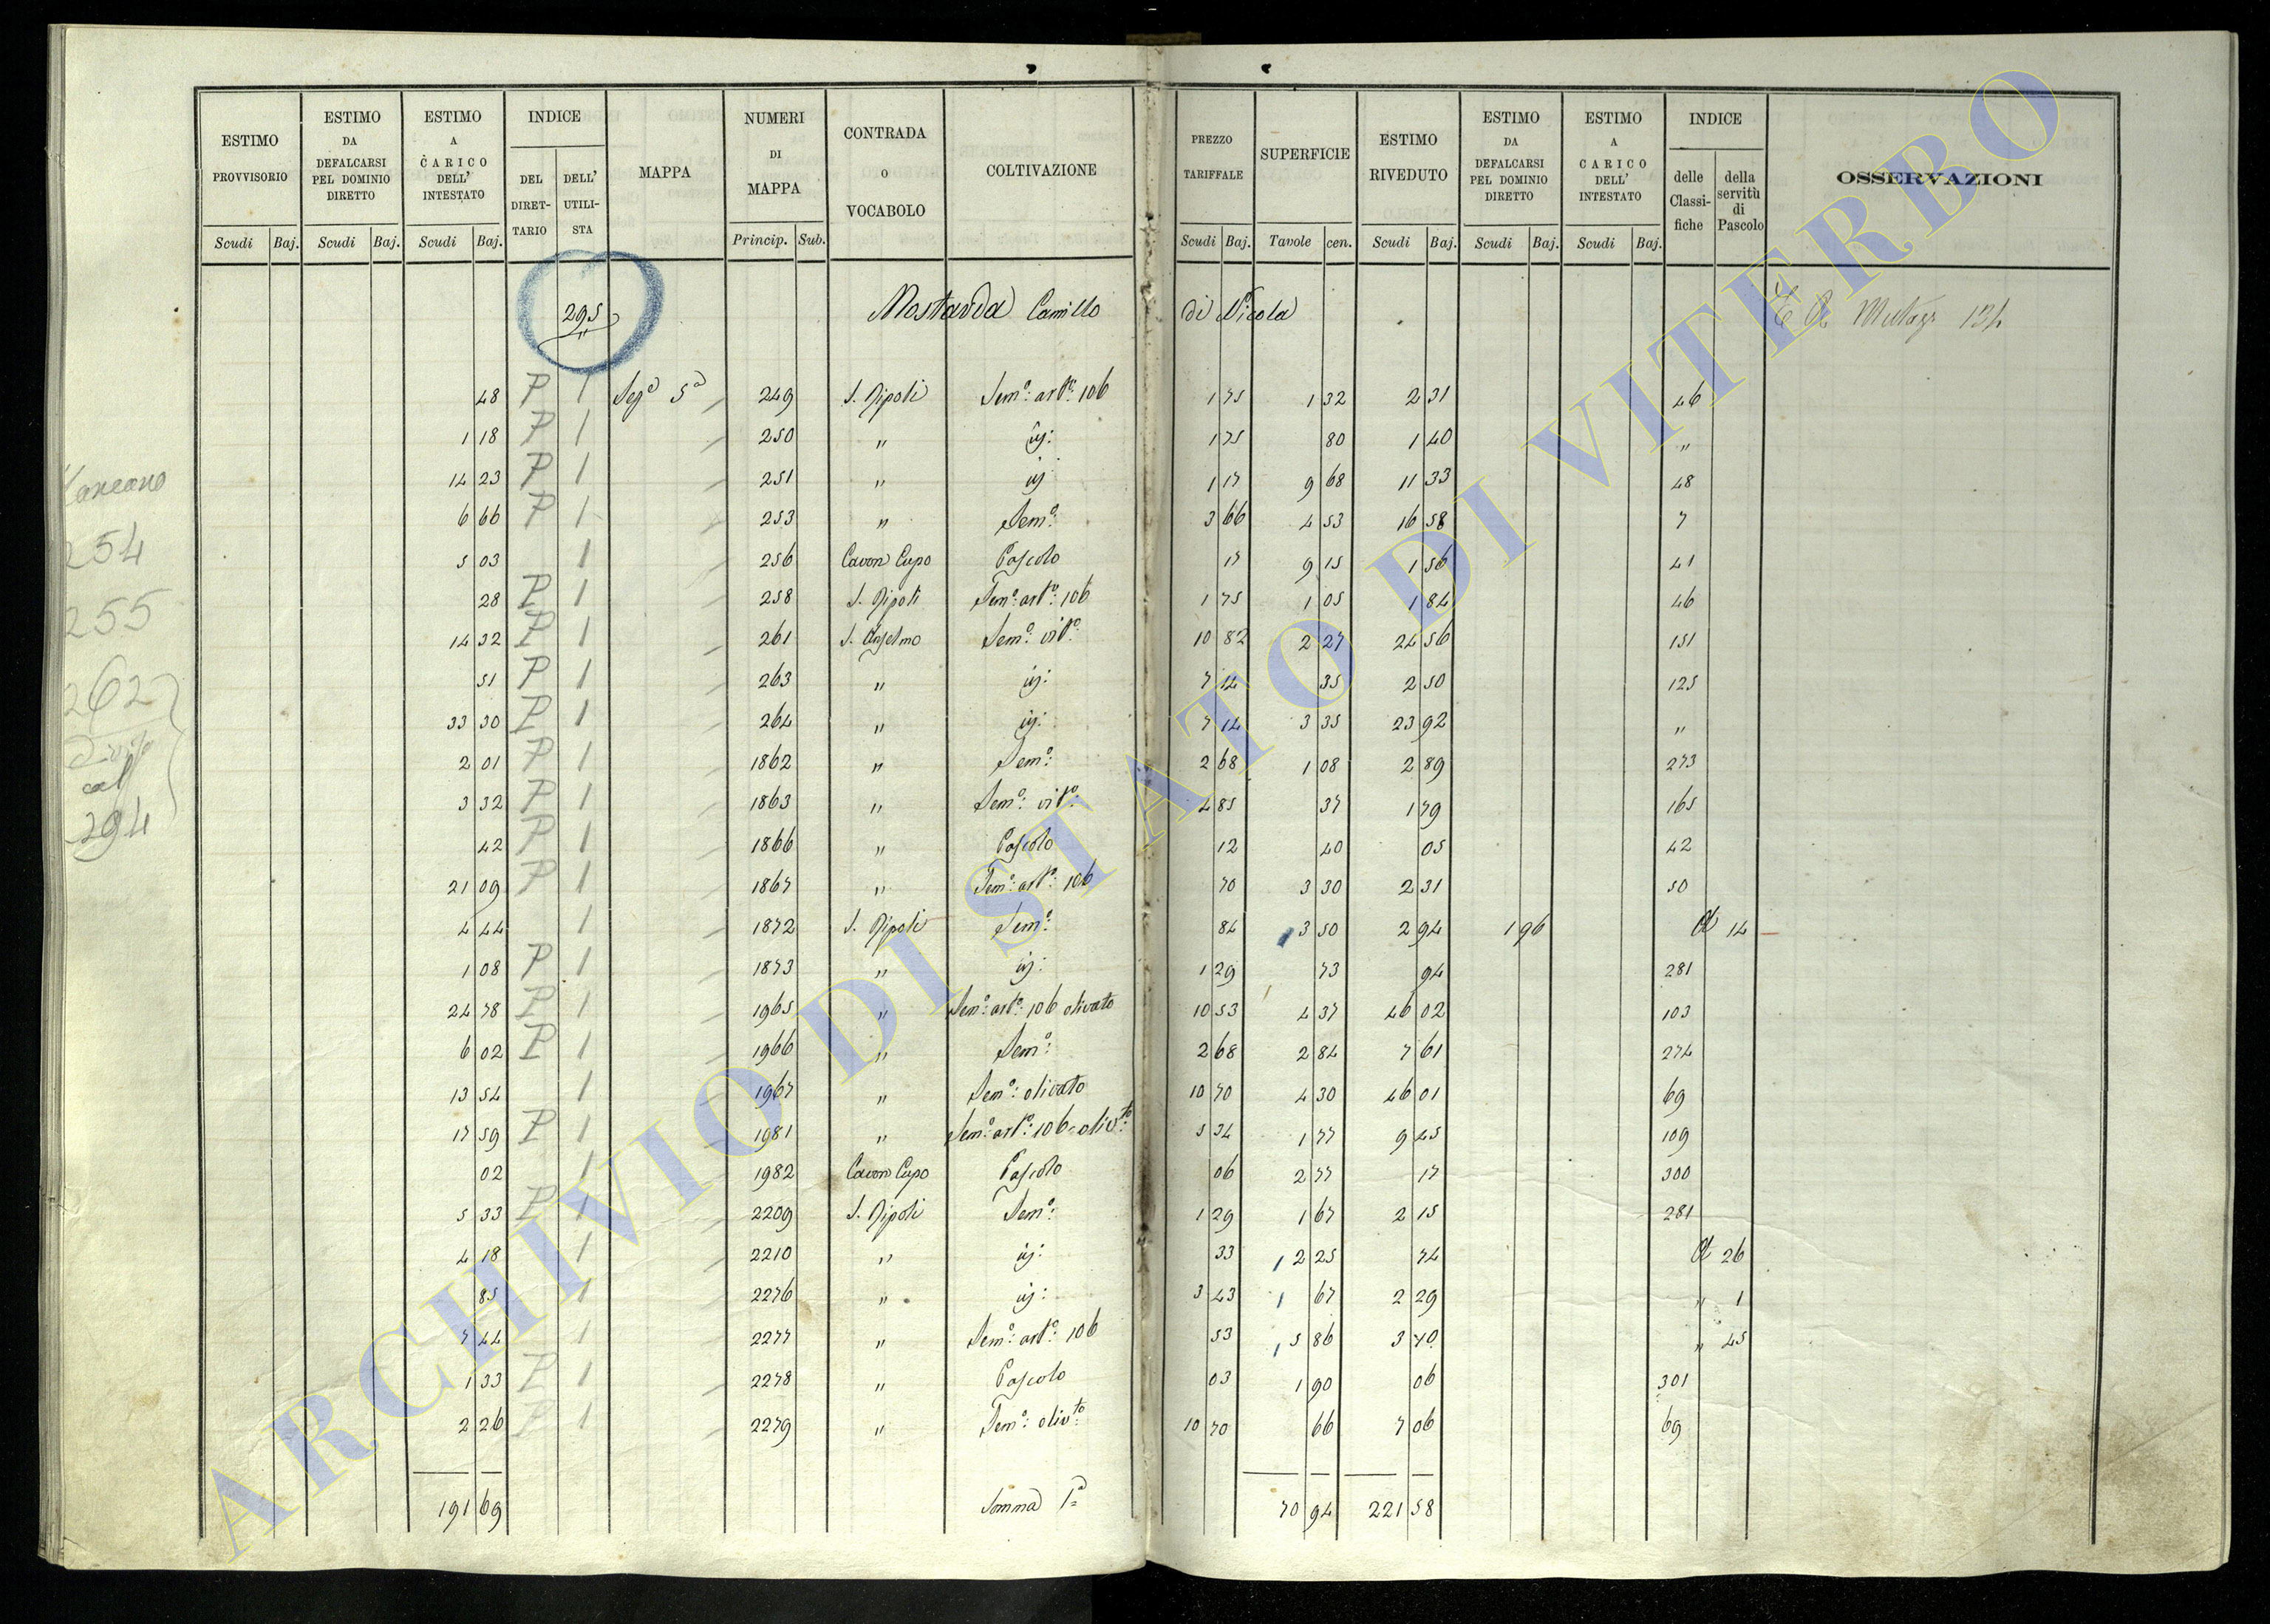 ESTIMO PROVVISORIO Scudi Baj.
ESTIMO DA DEFALCARSI PEL DOMINIO DIRETTO Scudi Baj.
ESTIMO A CARICO DELL' INTESTATO Scudi Baj.
INDICE DEL DIRET-TARIO DELL' UTILI-STA
MAPPA
NUMERI DI MAPPA Princip. Sub.
CONTRADA O VOCABOLO
COLTIVAZIONE
PREZZO TARIFFALE Scudi Baj.
SUPERFICIE Tavole cen.
ESTIMO RIVEDUTO Scudi Baj.
ESTIMO DA DEFALCARSI PEL DOMINIO DIRETTO Scudi Baj.
ESTIMO A CARICO DELL' INTESTATO Scudi Baj.
INDICE delle Classi-fiche della servitù di Pascolo
OSSERVAZIONI
295 Mostarda Camillo di Nicola 134
48 P 1 Sez.a 5a 249 S. Ripoli Sem.o art.o 106 1 75 1 32 2 31 46
1 18 P 1 250 " id: 1 75 80 1 40 "
14 23 P 1 251 " id 1 17 9 68 11 33 48
6 66 P 1 253 " Sem.o 3 66 4 53 16 58 7
5 03 1 256 Cavon Cupo Pascolo 17 9 15 1 56 41
28 P 1 258 S. Ripoli Sem.o art.o 106 1 75 1 05 1 84 46
14 32 P 1 261 S. Anselmo Sem.o vit.o 10 82 2 27 24 56 151
51 P 1 263 " id: 7 14 35 2 50 125
33 30 P 1 264 " id: 7 14 3 35 23 92 "
2 01 P 1 1862 " Sem.o 2 68 1 08 2 89 273
3 32 P 1 1863 " Sem.o vit.o 4 85 37 1 79 165
42 P 1 1866 " Pascolo 12 40 05 42
21 09 P 1 1867 " Sem.o art.o 106 70 3 30 2 31 50
4 44 1 1872 S. Ripoli Sem.o 84 3 50 2 94 1 96 A 14
1 08 P 1 1873 " id: 1 29 73 94 281
24 78 P 1 1965 " Sem.o art.o 106 olivato 10 53 4 37 46 02 103
6 02 P 1 1966 " Sem.o 2 68 2 84 7 61 274
13 54 1 1967 " Sem.o olivato 10 70 4 30 46 01 69
17 59 P 1 1981 " Sem.o art.o 106 oliv.to 5 34 1 77 9 45 109
02 1 1982 Cavon Cupo Pascolo 06 2 77 17 300
5 33 P 1 2209 S. Ripoli Sem.o 1 29 1 67 2 15 281
4 18 1 2210 " id: 33 2 25 74 A 26
85 1 2276 " id: 3 43 67 2 29 " 1
7 44 1 2277 " Sem.o art.o 106 53 5 86 3 10 " 45
1 33 P 1 2278 " Pascolo 03 1 90 06 301
2 26 P 1 2279 " Sem.o oliv.to 10 70 66 7 06 69
191 69 Somma 1a 70 94 221 58
254
255
262
294
ARCHIVIO DI STATO DI VITERBO